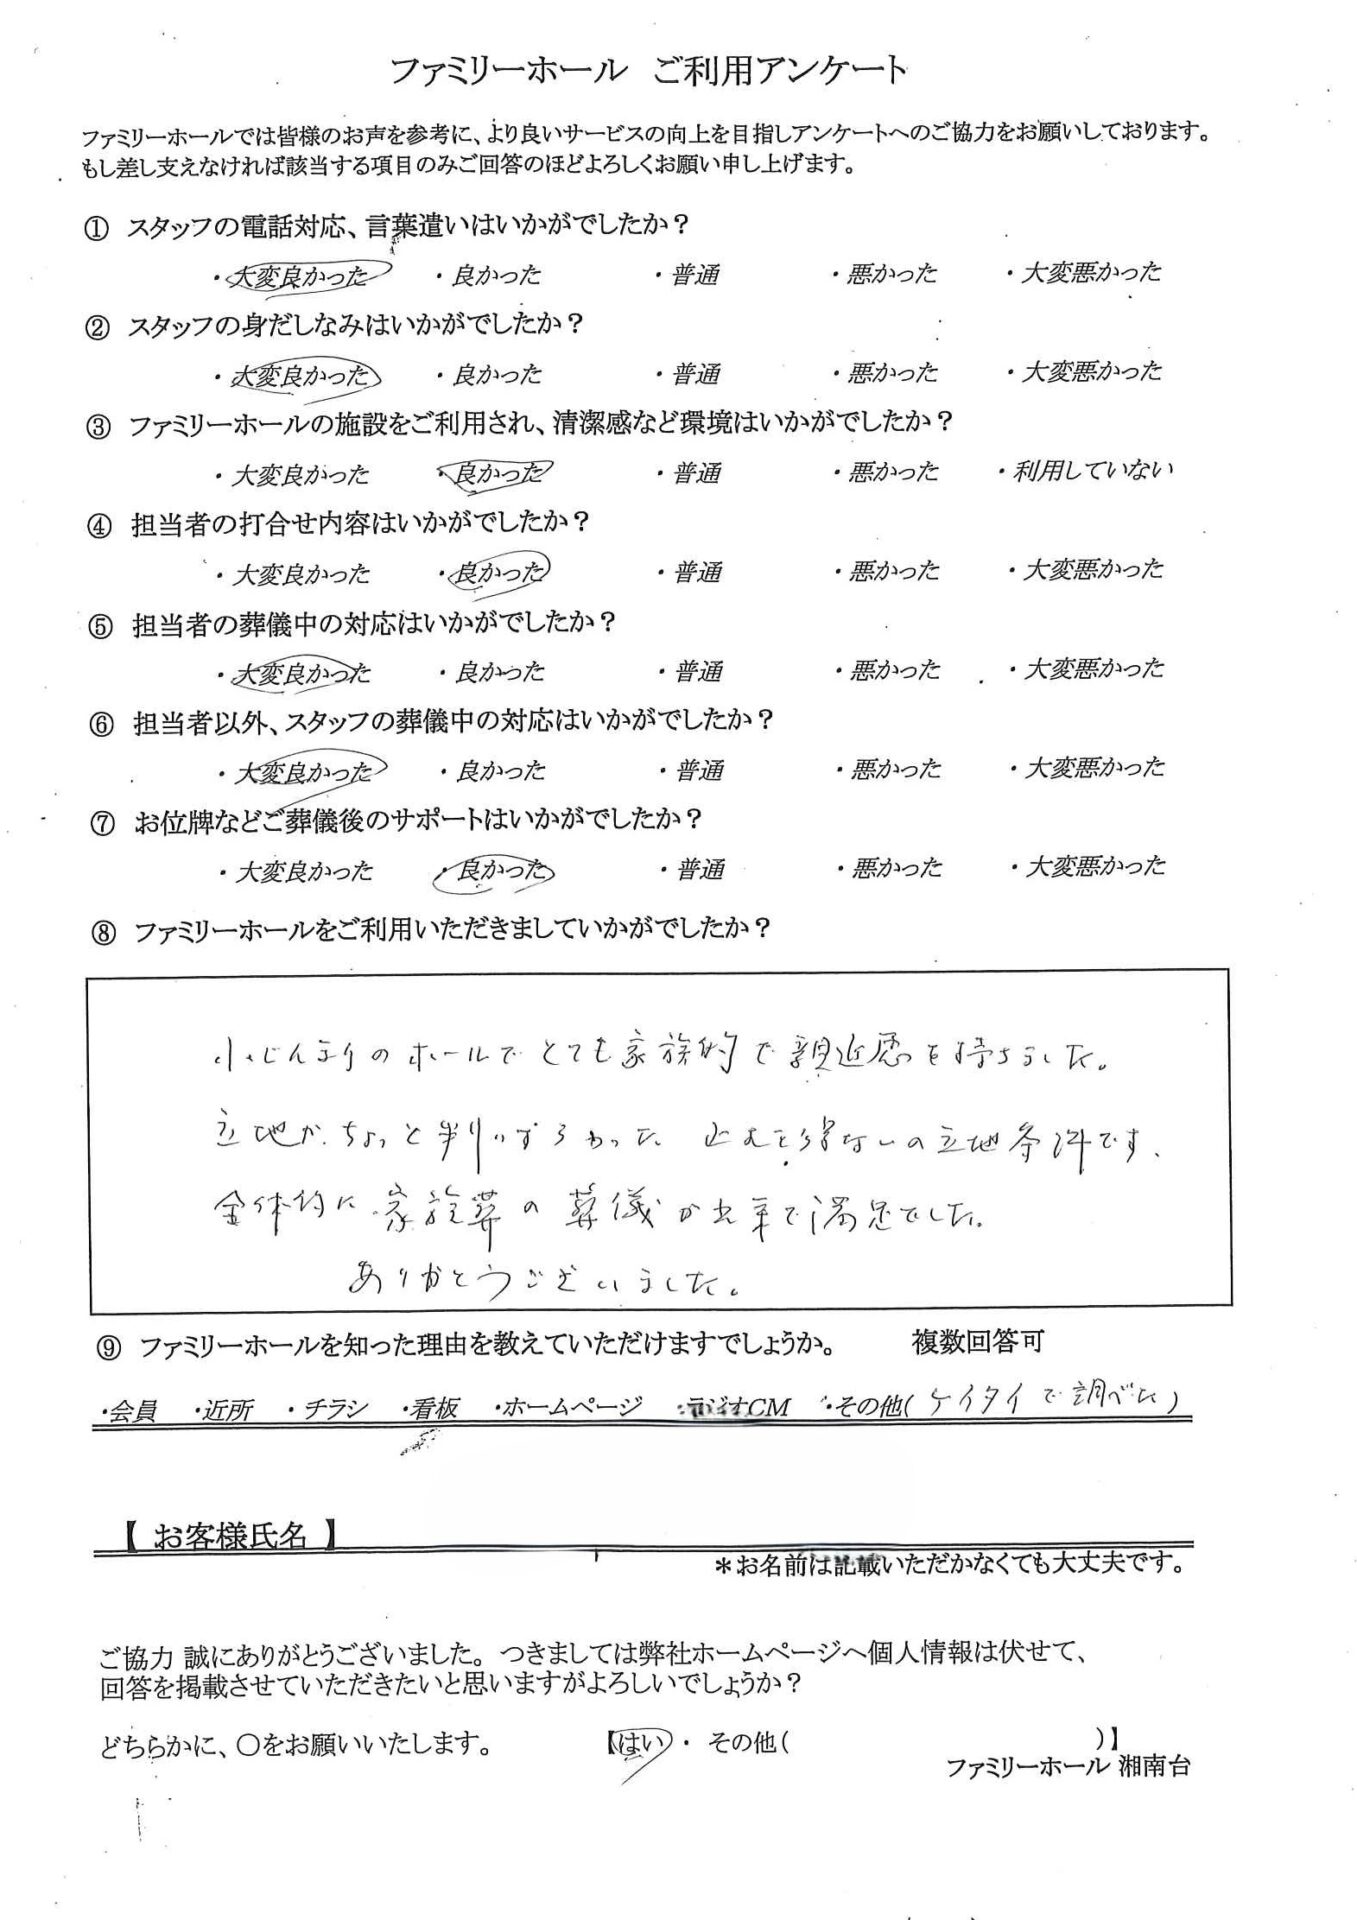 ファミリーホール ご利用アンケート
ファミリーホールでは皆様のお声を参考に、より良いサービスの向上を目指しアンケートへのご協力をお願いしております。
もし差し支えなければ該当する項目のみご回答のほどよろしくお願い申し上げます。
① スタッフの電話対応、言葉遣いはいかがでしたか？
・大変良かった ・良かった ・普通 ・悪かった ・大変悪かった
② スタッフの身だしなみはいかがでしたか？
・大変良かった ・良かった ・普通 ・悪かった ・大変悪かった
③ ファミリーホールの施設をご利用され、清潔感など環境はいかがでしたか？
・大変良かった ・良かった ・普通 ・悪かった ・利用していない
④ 担当者の打合せ内容はいかがでしたか？
・大変良かった ・良かった ・普通 ・悪かった ・大変悪かった
⑤ 担当者の葬儀中の対応はいかがでしたか？
・大変良かった ・良かった ・普通 ・悪かった ・大変悪かった
⑥ 担当者以外、スタッフの葬儀中の対応はいかがでしたか？
・大変良かった ・良かった ・普通 ・悪かった ・大変悪かった
⑦ お位牌などご葬儀後のサポートはいかがでしたか？
・大変良かった ・良かった ・普通 ・悪かった ・大変悪かった
⑧ ファミリーホールをご利用いただきましていかがでしたか？
小じんまりのホールでとても家族的で親近感を持ちました。
立地がちょっと判りずらかった 止むを得ないの立地条件です、
全体的に家族葬の葬儀が出来て満足でした。
ありがとうございました。
⑨ ファミリーホールを知った理由を教えていただけますでしょうか。 複数回答可
・会員 ・近所 ・チラシ ・看板 ・ホームページ ・ラジオCM ・その他(ケイタイで調べた)
【 お客様氏名 】
＊お名前は記載いただかなくても大丈夫です。
ご協力 誠にありがとうございました。つきましては弊社ホームページへ個人情報は伏せて、
回答を掲載させていただきたいと思いますがよろしいでしょうか？
どちらかに、○をお願いいたします。 【はい ・ その他( )】
ファミリーホール 湘南台